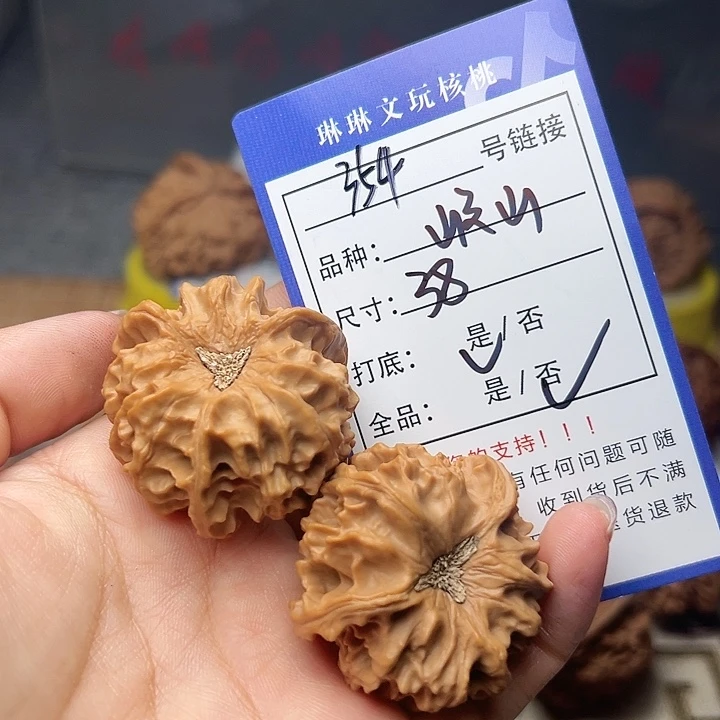 琳琳文玩核桃
354 号链接
品种：岐山
尺寸：38
打底：是/否
全品：是/否
的支持！！！
有任何问题可随
收到货后不满
货退款